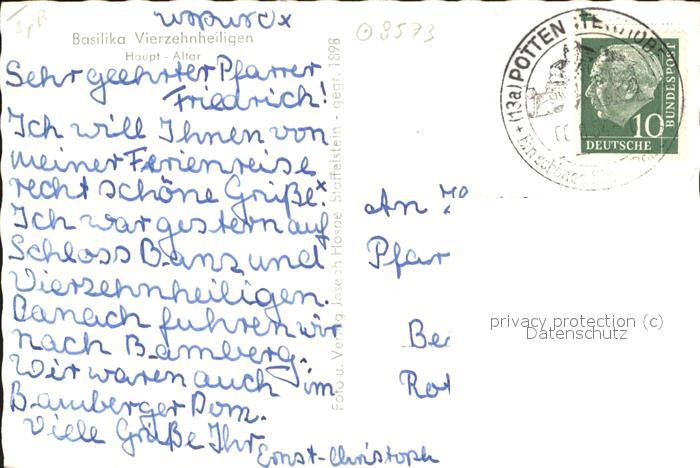 Basilika Vierzehnheiligen
Haupt - Altar
Sehr geehrter Pfarrer
Friedrich!
Ich will Ihnen von
meiner Ferienreise
recht schöne Grüße.x
Ich war gestern auf
Schloss Banz und
Vierzehnheiligen.
Danach fuhren wir
nach Bamberg.
Wir waren auch im
Bamberger Dom.
Viele Grüße Ihr
Ernst-Christoph
Foto u. Verlag Joseph Hospe, Staffelstein - gegr. 1898
8573
(13a) POTTENSTEIN
10
DEUTSCHE
BUNDESPOST
An
Pfar
Be
Rot
privacy protection (c)
Datenschutz